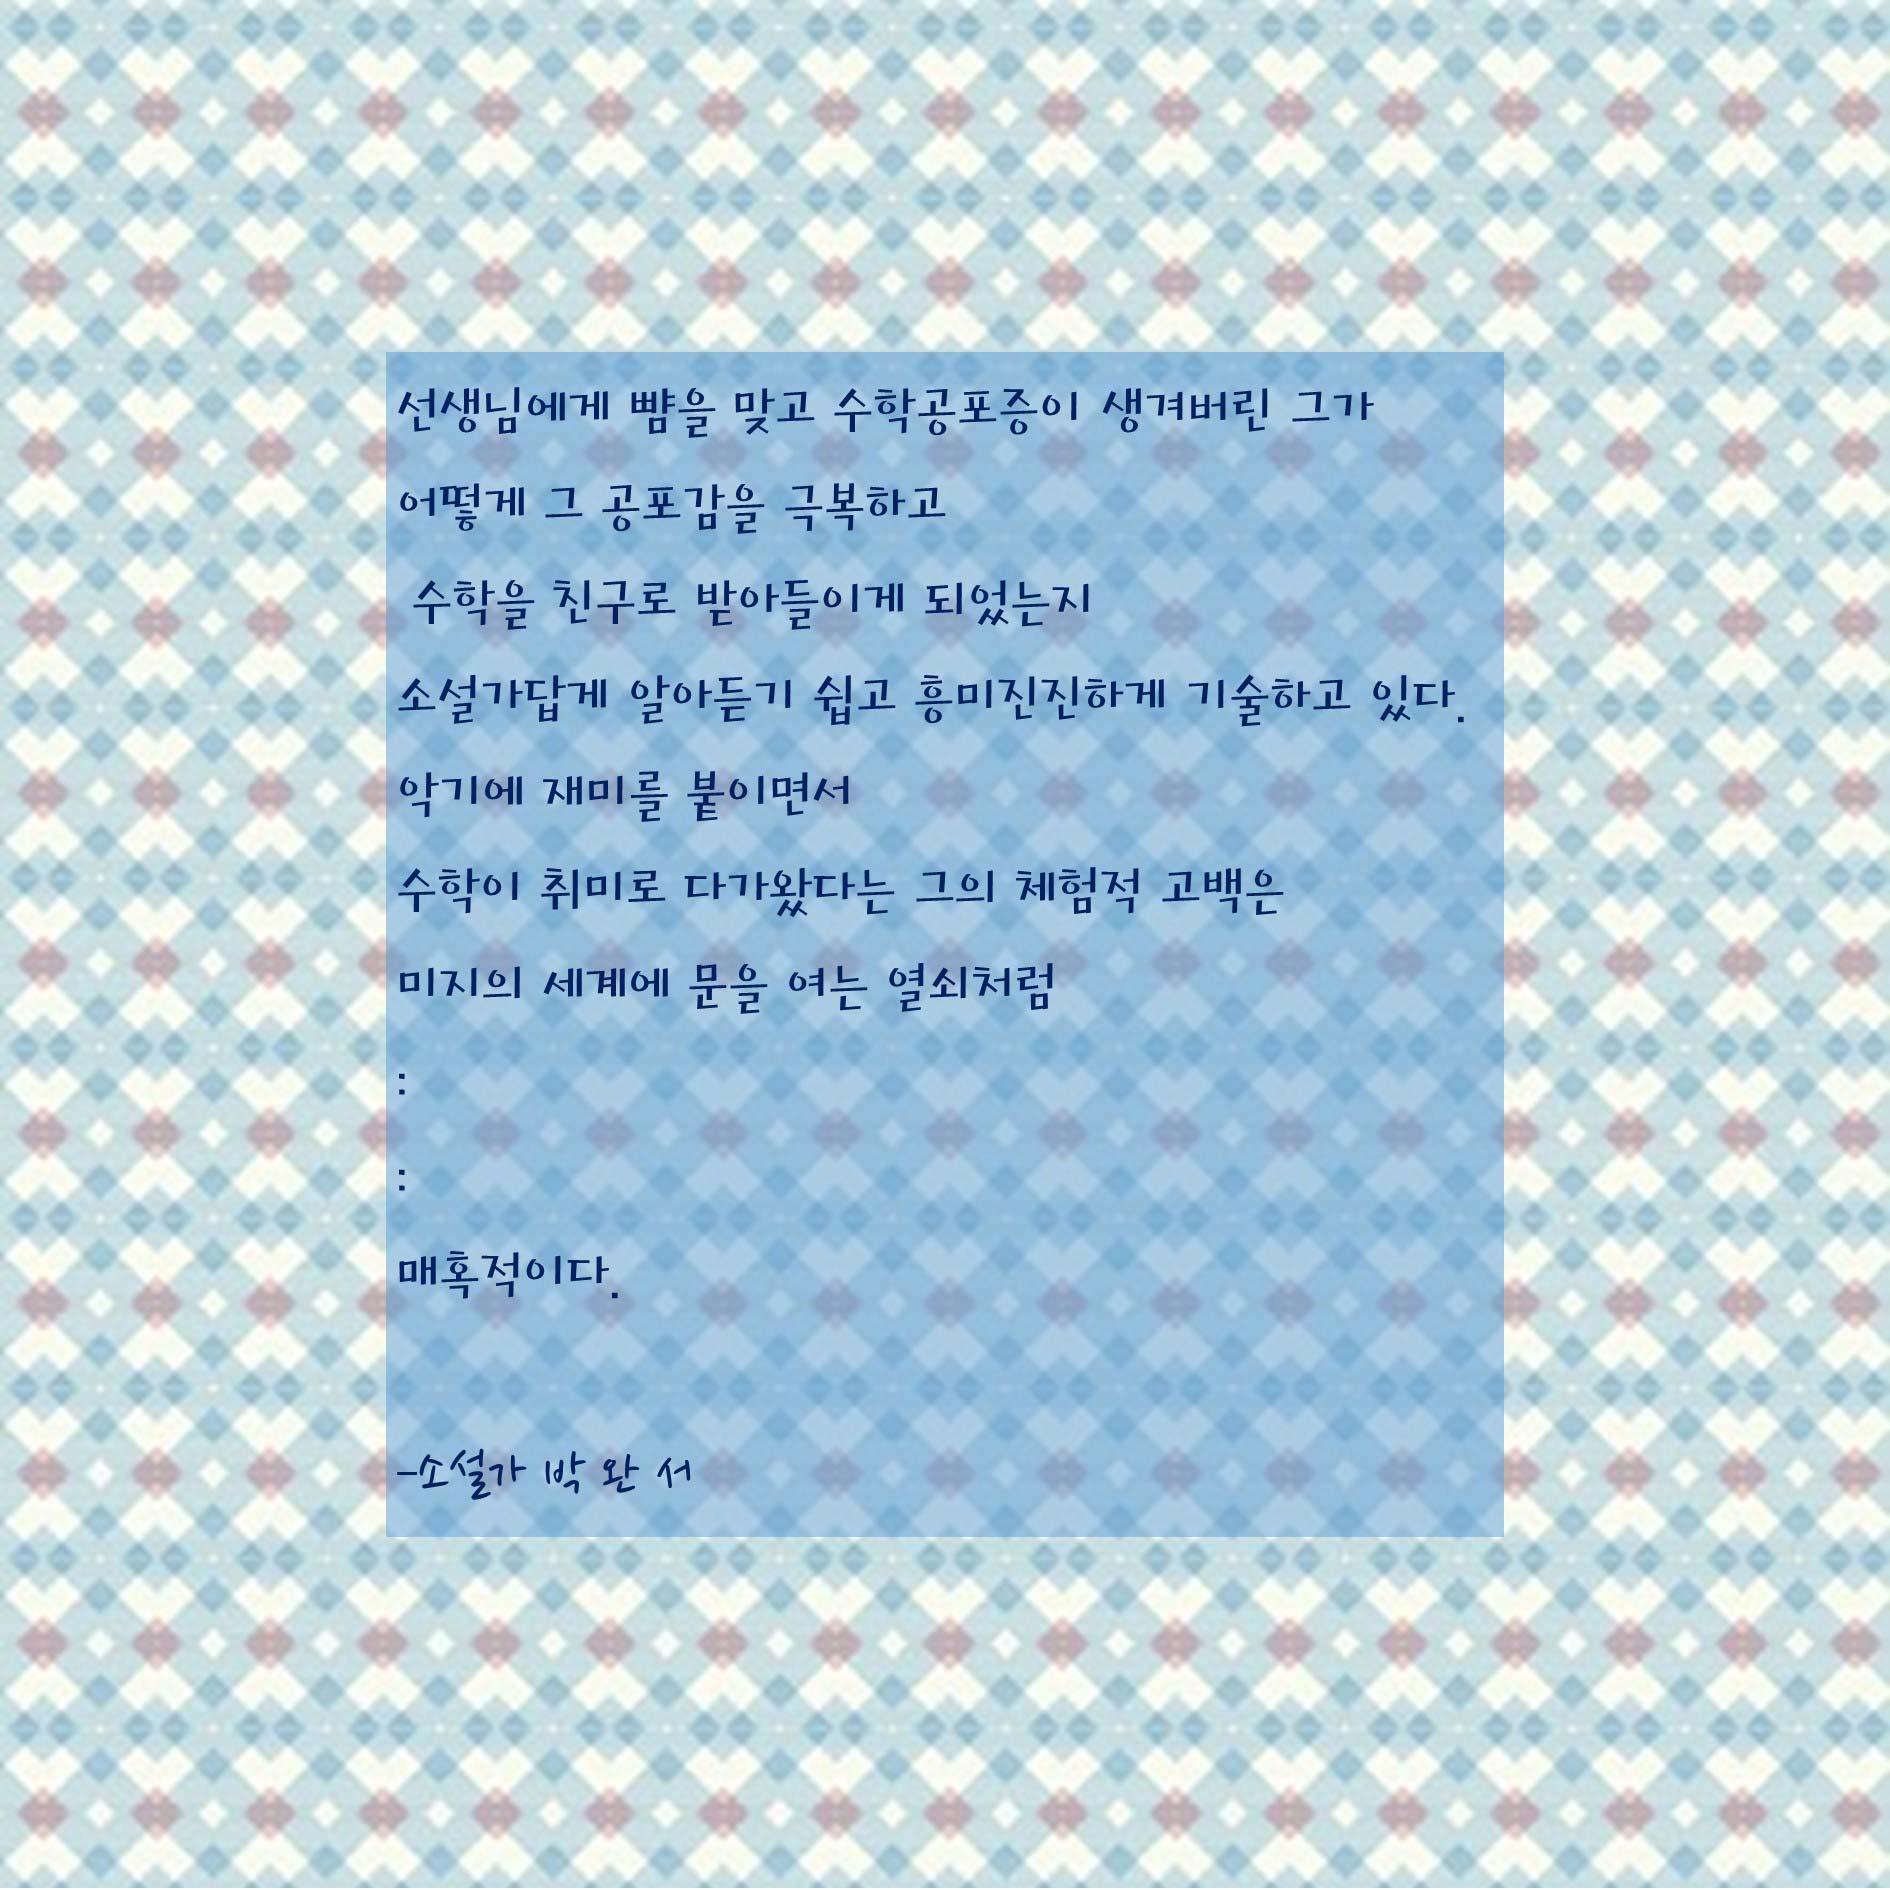 선생님에게 뺨을 맞고 수학공포증이 생겨버린 그가
어떻게 그 공포감을 극복하고
수학을 친구로 받아들이게 되었는지
소설가답게 알아듣기 쉽고 흥미진진하게 기술하고 있다.
악기에 재미를 붙이면서
수학이 취미로 다가왔다는 그의 체험적 고백은
미지의 세계에 문을 여는 열쇠처럼
:
:
매혹적이다.
-소설가 박 완 서